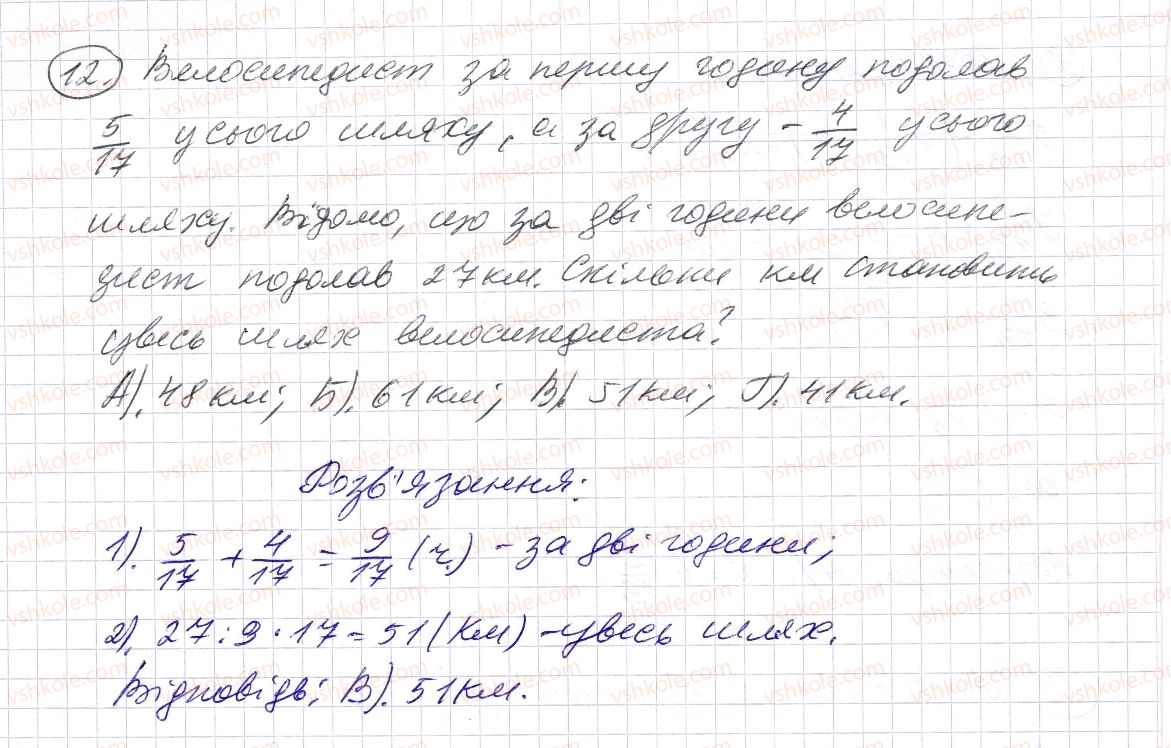 12. Велосипедист за першу годину подолав
5/17 усього шляху, а за другу - 4/17 усього
шляху. Відомо, що за дві години велосипе-
дист подолав 27 км. Скільки км становить
увесь шлях велосипедиста?
А). 48 км; Б). 61 км; В). 51 км; Г). 41 км.
Розв'язання:
1). 5/17 + 4/17 = 9/17 (ч.) - за дві години;
2). 27 : 9 · 17 = 51 (км) - увесь шлях.
Відповідь: В). 51 км.
vshkole.com